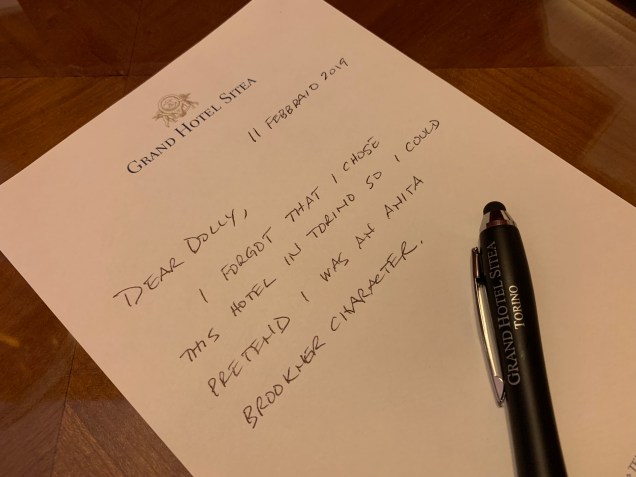 GRAND HOTEL SITEA
11 FEBBRAIO 2019
DEAR DOLLY,
I FORGOT THAT I CHOSE
THIS HOTEL IN TORINO SO I COULD
PRETEND I WAS AN ANITA
BROOKNER CHARACTER.
GRAND HOTEL SITEA
TORINO